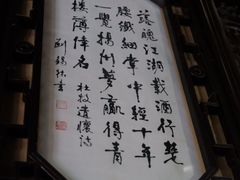 落魄江湖載酒行楚
腰纖細掌中輕十年
一覺揚州夢贏得青
樓薄倖名 杜牧遣懷詩